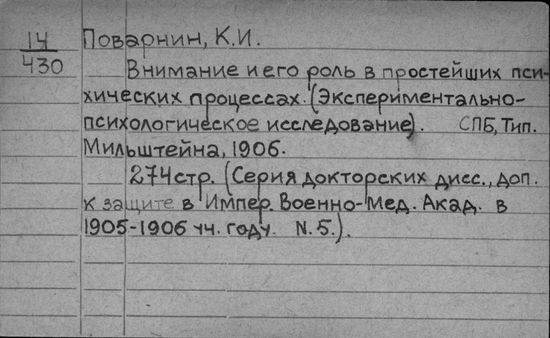 14
430
Поварнин, К.И.
Внимание и его роль в простейших пси-
хических процессах. (Экспериментально-
психологическое исследование). СПБ, Тип.
Мильштейна, 1906.
274 стр. (Серия докторских дисс., доп.
к защите в Импер. Военно-Мед. Акад. в
1905-1906 уч. году. N. 5.).